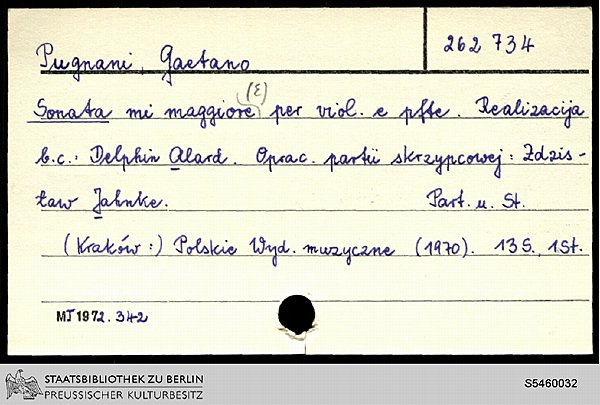 Pugnani, Gaetano
262 734
(E)
Sonata mi maggiore per viol. e pfte. Realizacija
b.c.: Delphin Alard. Oprac. partii skrzypcowej: Zdzis-
ław Jahnke. Part. u. St.
(Kraków:) Polskie Wyd. muzyczne (1970). 13 S., 1 St.
MJ 1972. 342
STAATSBIBLIOTHEK ZU BERLIN
PREUSSISCHER KULTURBESITZ
S5460032